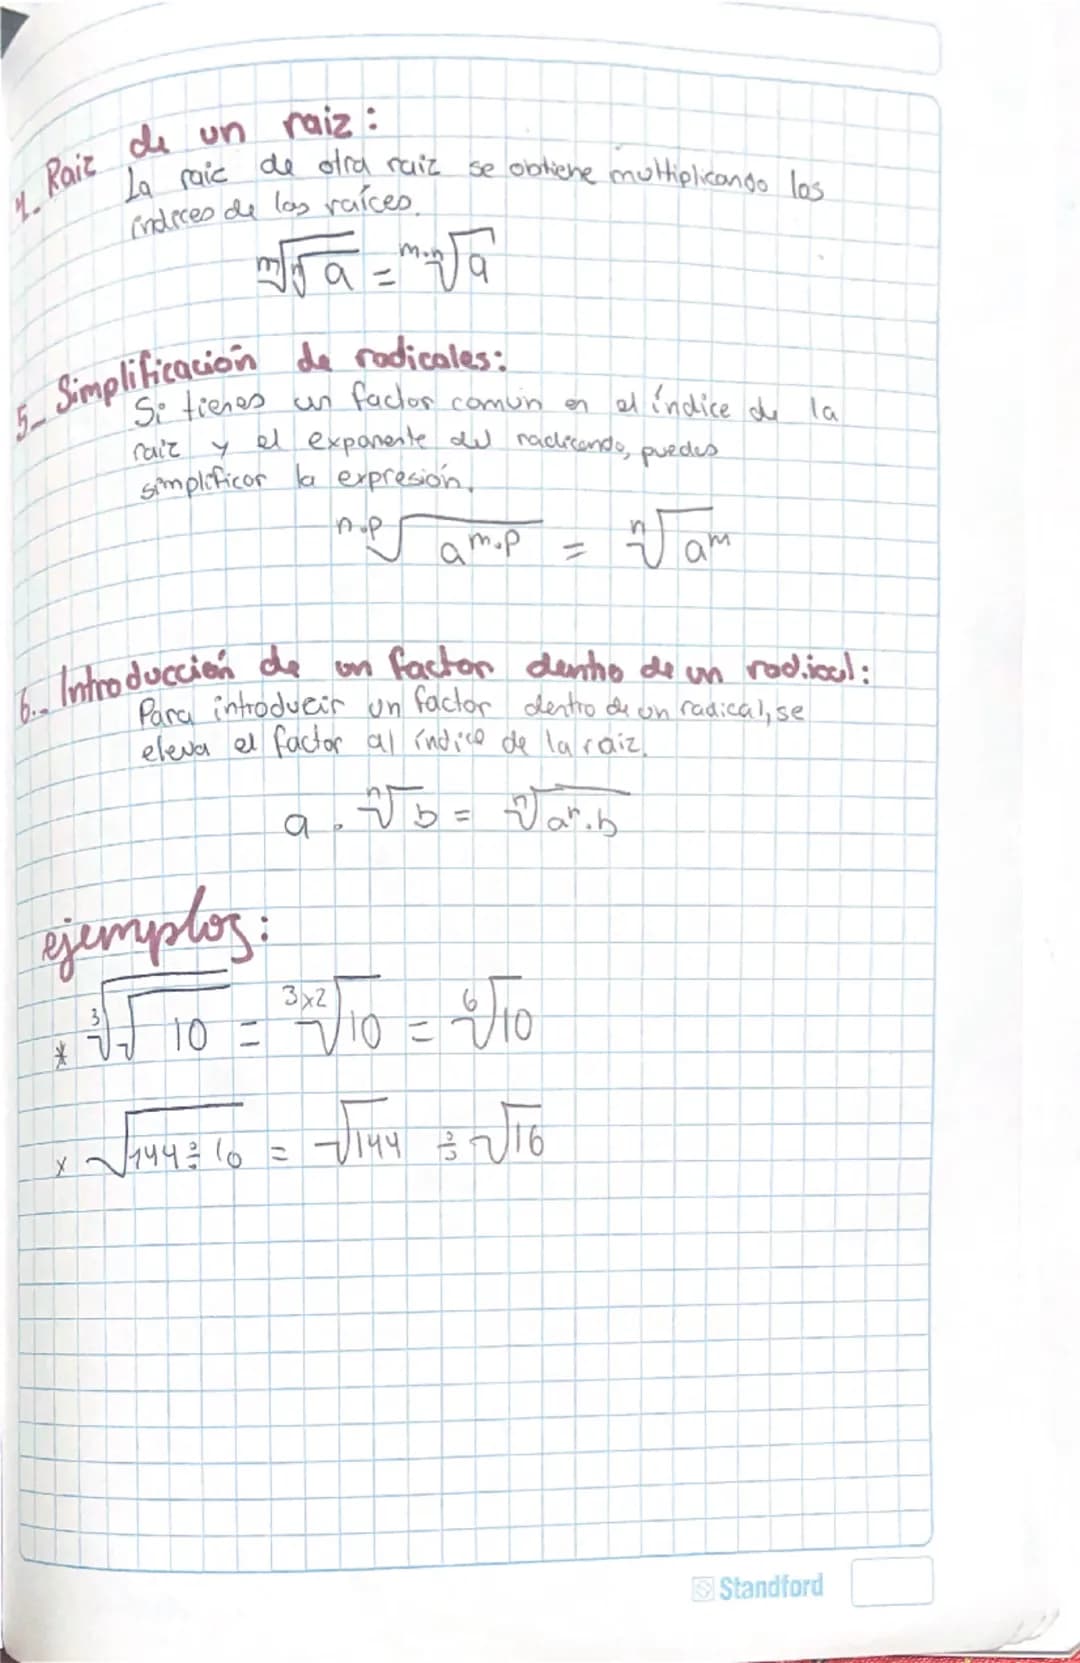 4. Raiz de un raiz:
La raiz de otra raiz se obtiene multiplicando los
índices de las raíces.
ᵐ√ⁿ√a = ᵐ·ⁿ√a
5- Simplificación de radicales:
Si tienes un factor común en el índice de la
raiz y el exponente del radicando, puedes
simplificar la expresión.
ⁿ·ᵖ√aᵐ·ᵖ = ⁿ√aᵐ
6.- Introducción de un factor dentro de un radical:
Para introducir un factor dentro de un radical, se
eleva el factor al índice de la raiz.
a · ⁿ√b = ⁿ√aⁿ·b
ejemplos:
* ³√√10 = ³ˣ²√10 = ⁶√10
x √144÷16 = √144 ÷ √16
Standford